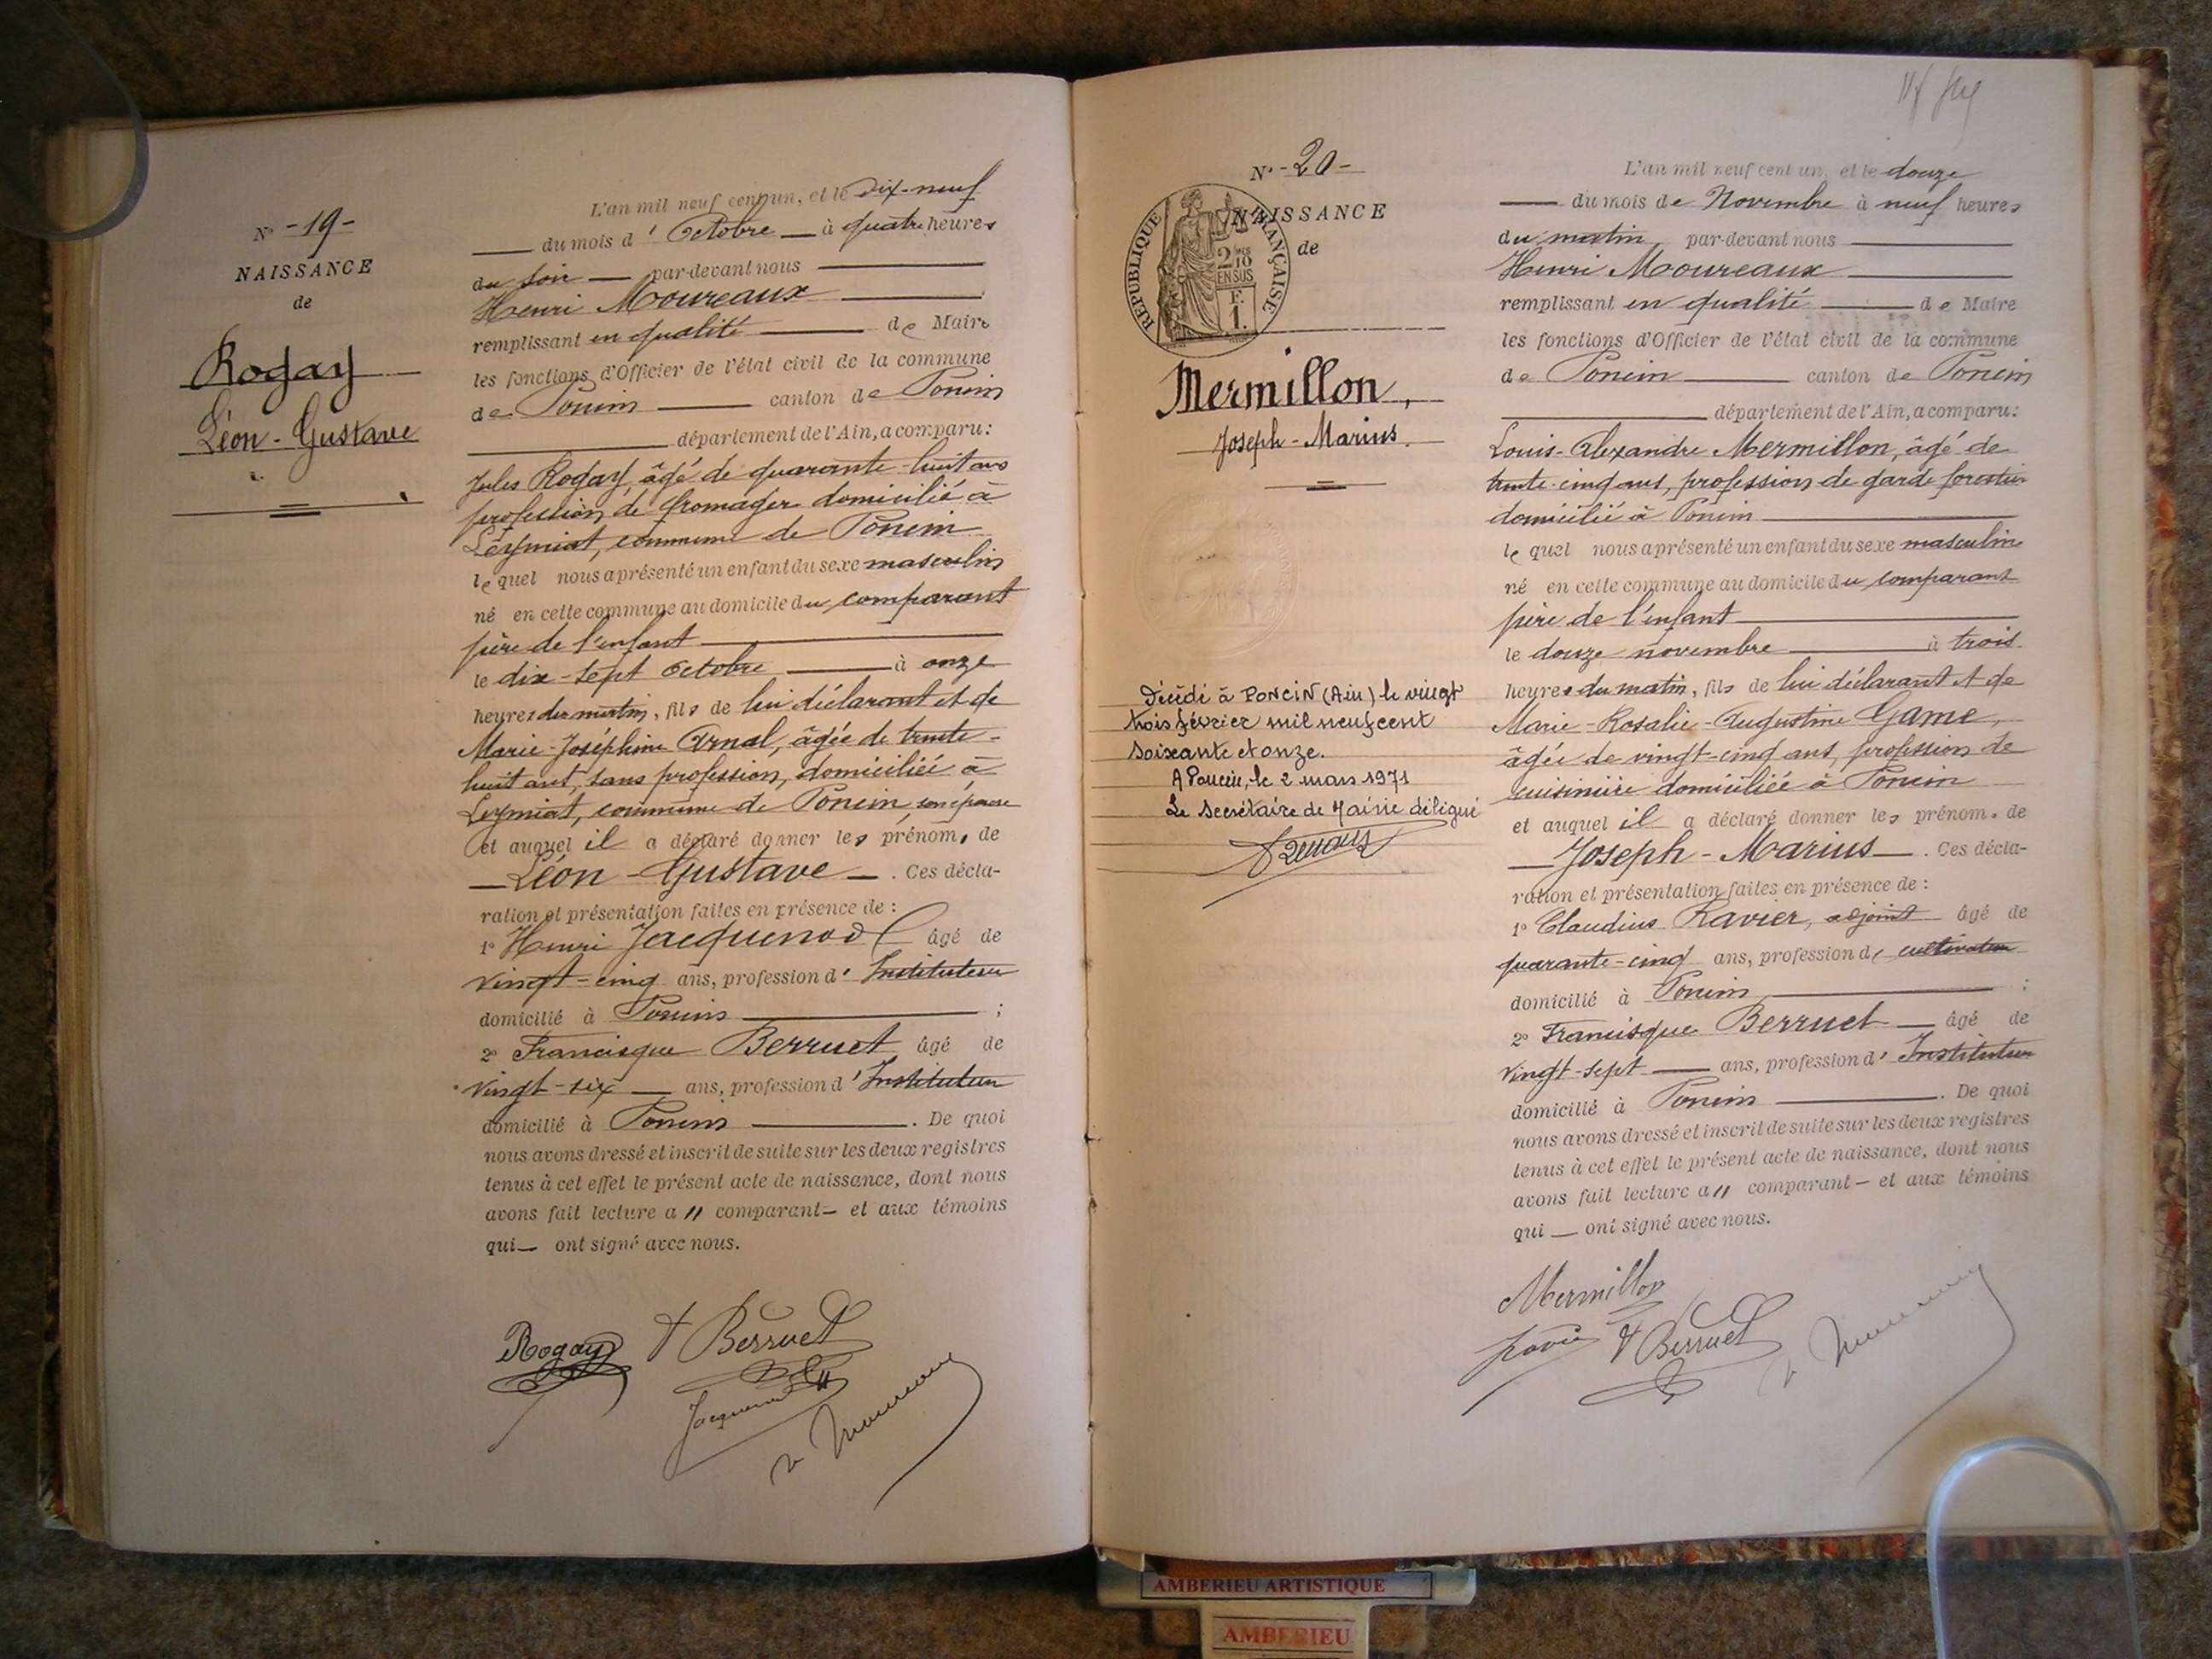 N° - 19 -
NAISSANCE
de
Rogay
Léon - Gustave
L'an mil neuf cent un, et le dix-neuf
du mois d' Octobre à quatre heures
du soir par-devant nous
Henri Moureaux
remplissant en qualité de Maire
les fonctions d'Officier de l'état civil de la commune
de Poncin canton de Poncin
département de l'Ain, a comparu:
Jules Rogay, âgé de quarante-huit ans
profession de fromager domicilié à
Leymiat, commune de Poncin
lequel nous a présenté un enfant du sexe masculin
né en cette commune au domicile du comparant
père de l'enfant
le dix-sept Octobre à onze
heures du matin, fils de lui déclarant et de
Marie-Joséphine Arnal, âgée de trente-
huit ans, sans profession, domiciliée à
Leymiat, commune de Poncin son épouse
et auquel il a déclaré donner les prénoms de
Léon - Gustave. Ces décla-
ration et présentation faites en présence de :
1° Henri Jacquenod âgé de
vingt-cinq ans, profession d' Instituteur
domicilié à Poncin ;
2° Francisque Berruet âgé de
vingt-six ans, profession d' Instituteur
domicilié à Poncin. De quoi
nous avons dressé et inscrit de suite sur les deux registres
tenus à cet effet le présent acte de naissance, dont nous
avons fait lecture a // comparant - et aux témoins
qui - ont signé avec nous.
Rogay F Berruet
Jacquenod
N° - 20 -
RÉPUBLIQUE FRANÇAISE
2/10 EN SUS
F. 1.
NAISSANCE
de
Mermillon,
Joseph - Marius.
Décédé à PONCIN (Ain) le vingt
trois février mil neuf cent
soixante et onze.
A Poncin, le 2 mars 1971
Le Secrétaire de Mairie délégué
L'an mil neuf cent un, et le douze
du mois de Novembre à neuf heures
du matin, par-devant nous
Henri Moureaux
remplissant en qualité de Maire
les fonctions d'Officier de l'état civil de la commune
de Poncin canton de Poncin
département de l'Ain, a comparu:
Louis-Alexandre Mermillon, âgé de
trente-cinq ans, profession de garde forestier
domicilié à Poncin
lequel nous a présenté un enfant du sexe masculin
né en cette commune au domicile du comparant
père de l'enfant
le douze novembre à trois
heures du matin, fils de lui déclarant et de
Marie-Rosalie-Augustine Game,
âgée de vingt-cinq ans, profession de
cuisinière domiciliée à Poncin
et auquel il a déclaré donner les prénoms de
Joseph - Marius. Ces décla-
ration et présentation faites en présence de :
1° Claudius Ravier, adjoint âgé de
quarante-cinq ans, profession de cultivateur
domicilié à Poncin ;
2° Francisque Berruet âgé de
vingt-sept ans, profession d' Instituteur
domicilié à Poncin. De quoi
nous avons dressé et inscrit de suite sur les deux registres
tenus à cet effet le présent acte de naissance, dont nous
avons fait lecture a // comparant - et aux témoins
qui - ont signé avec nous.
Mermillon
F Berruet
AMBERIEU ARTISTIQUE
AMBERIEU